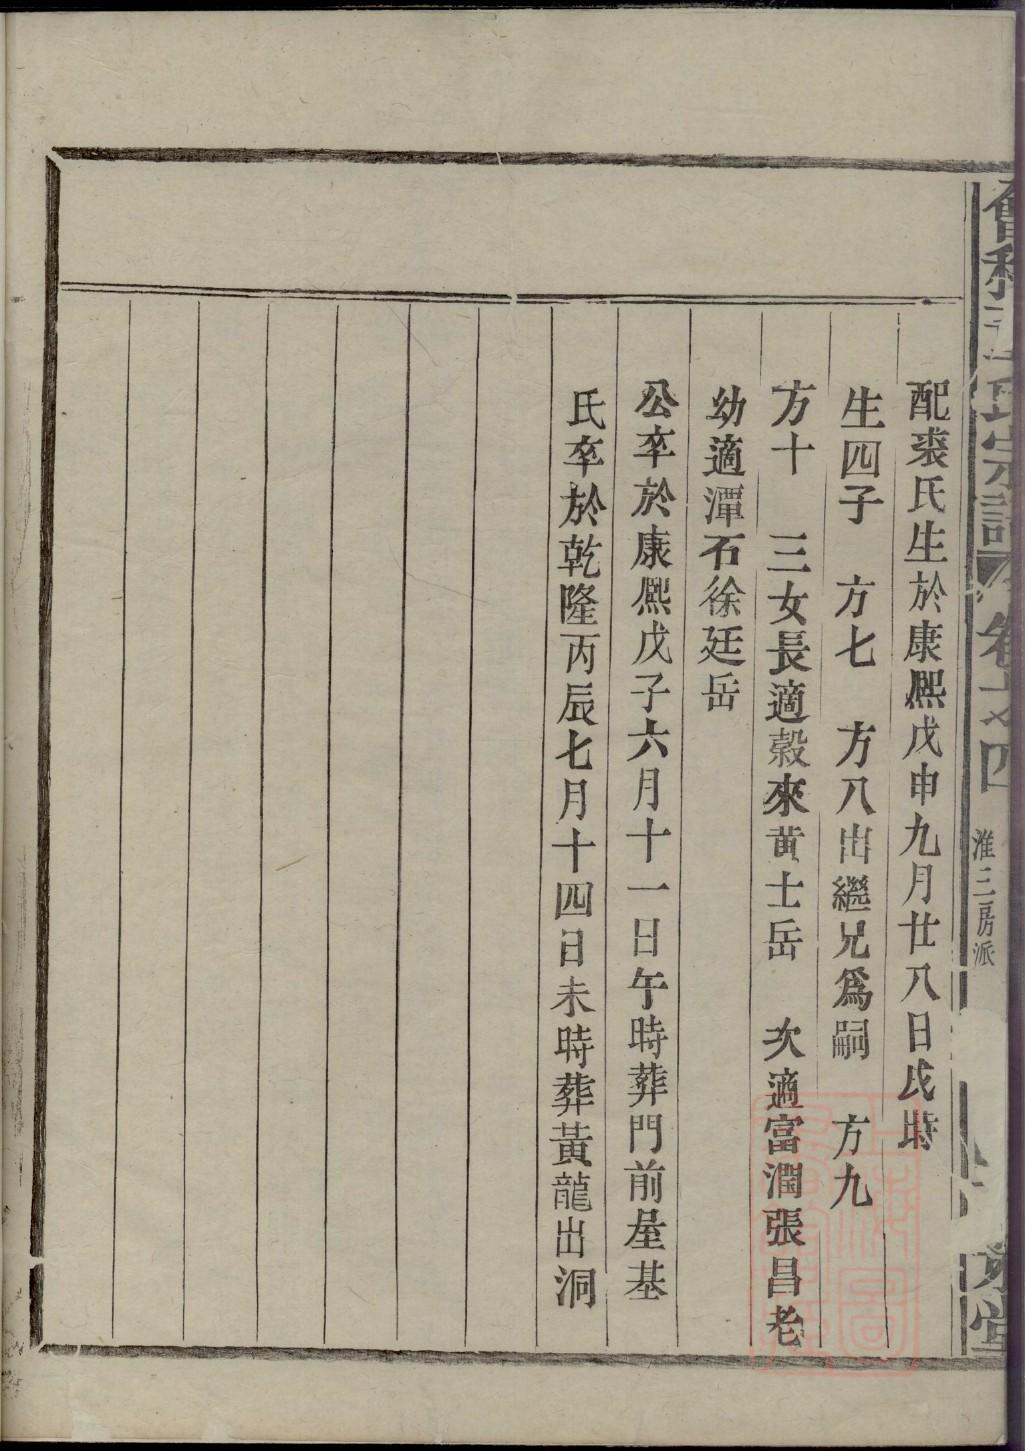 會稽王氏宗譜 卷之四 淮三房派 堂
配裘氏生於康熙戊申九月廿八日戌時
生四子 方七 方八出繼兄爲嗣 方九
方十 三女長適穀來黄士岳 次適富潤張昌老
幼適潭石徐廷岳
公卒於康熙戊子六月十一日午時葬門前屋基
氏卒於乾隆丙辰七月十四日未時葬黃龍出洞